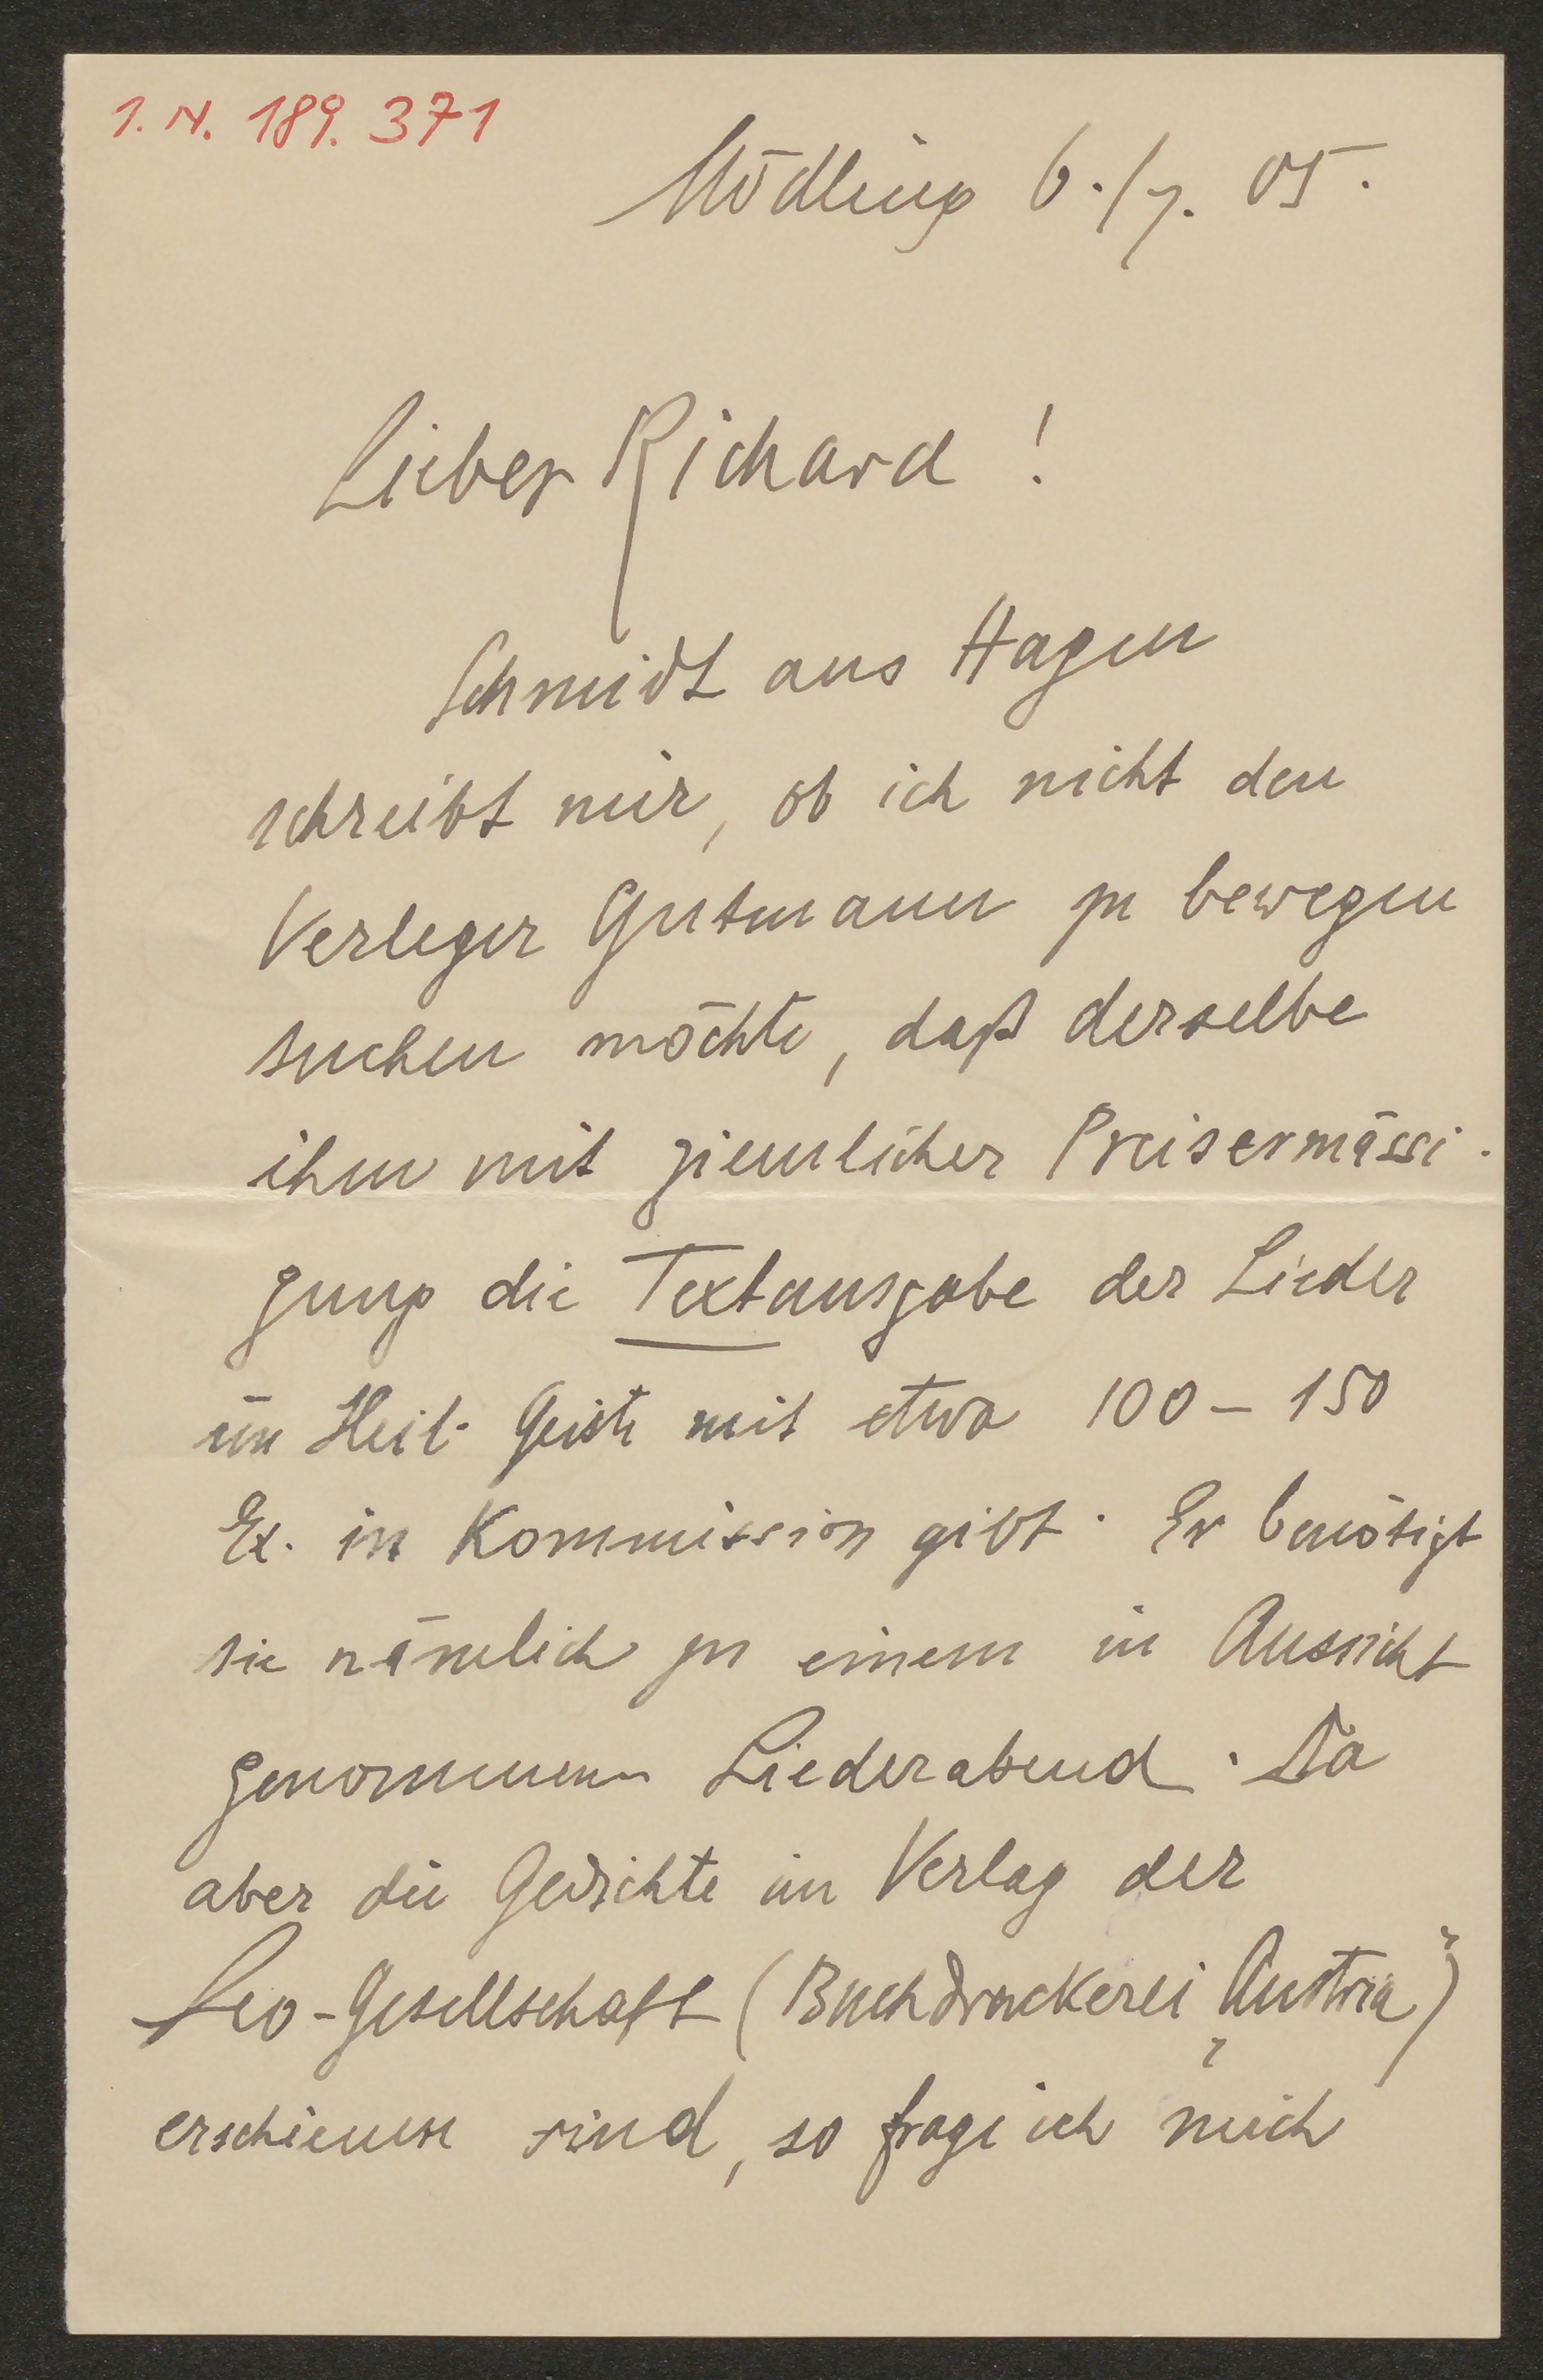 I. N. 189. 371
Mödling 6./7. 05.
Lieber Richard !
Schmidt aus Hagen
schreibt mir, ob ich nicht den
Verleger Gutmann zu bewegen
suchen möchte, daß derselbe
ihm mit ziemlicher Preisermässi-
gung die Textausgabe der Lieder
im Heil. Geiste mit etwa 100 – 150
Ex. in Kommission gibt. Er benötigt
sie nämlich zu einem in Aussicht
genommenen Liederabend. Da
aber die Gedichte im Verlag der
Leo-Gesellschaft (Buchdruckerei „Austria")
erschienen sind, so frage ich mich